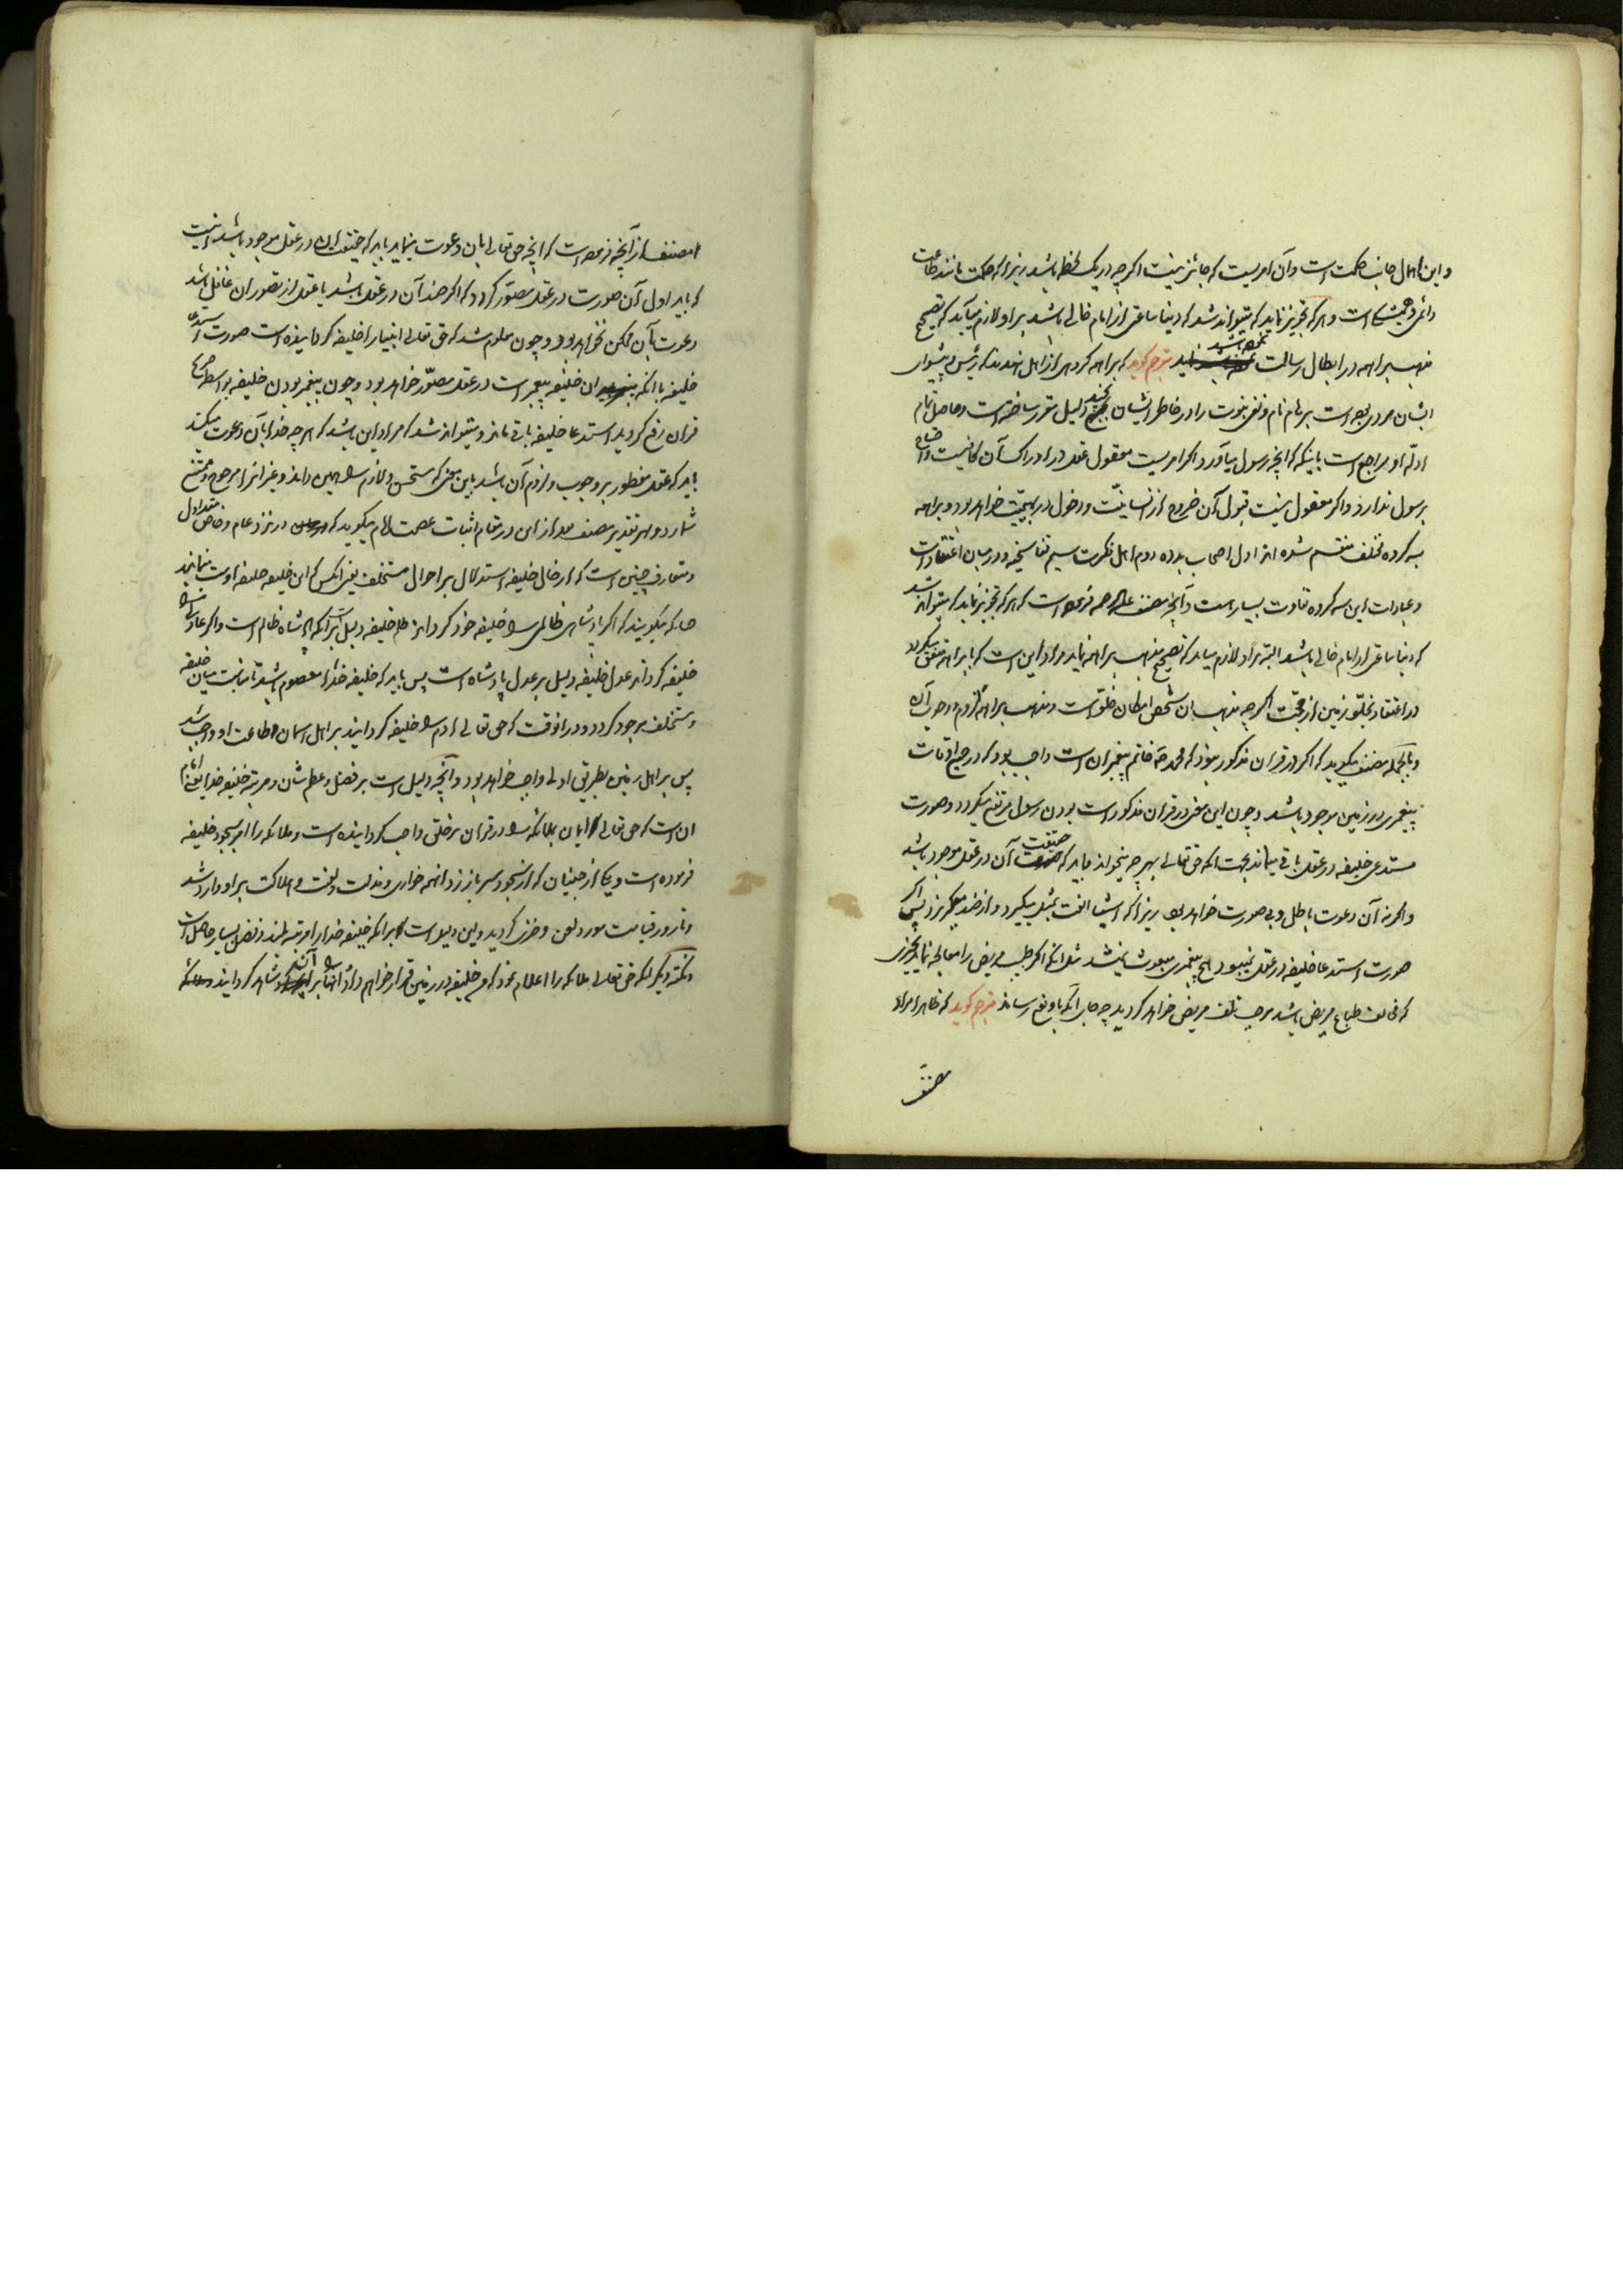 و این اهمال جانب حکمت است و آن امریست که جائز نیست اگرچه در یک لحظه باشد زیرا که حکمت مانند طاعت
دائمی و همیشگی است و هر که تجویز نماید که میتواند شد که دنیا ساعتی از امام خالی باشد بر او لازم می‌آید که تصحیح
مذهب براهمه در ابطال رسالت نموده باشد مترجم گوید که براهمه گروهی از اهل هندند که رئیس و پیشوای
ایشان مردی بوده است برهام نام و نفی نبوت را در خاطر ایشان بچند دلیل مقرر ساخته است و حاصل تمام
ادله او راجع است باینکه آنچه رسول می‌آورد اگر امریست معقول عقل در ادراک آن کافیست و احتیاج
برسول ندارد و اگر معقول نیست قبول آن خروج از انسانیت و دخول در بهیمیت خواهد بود و براهمه
به گروه مختلف منقسم شده‌اند اول اصحاب بدده دوم اهل فکرت سیم تناسخیه و در میان اعتقادات
و عبارات این سه گروه تفاوت بسیار است و آنچه مصنف علیه الرحمه فرموده است که هر که تجویز نماید که میتواند شد
که دنیا ساعتی از امام خالی باشد البته بر او لازم می‌آید که تصحیح مذهب براهمه نماید مراد این است که با براهمه متفق میگردد
در اعتقاد بخلو زمین از حجت اگرچه مذهب آن شخص امکان خلو است و مذهب براهمه لزوم و وجوب آن
و بالجمله مصنف میگوید که اگر در قرآن مذکور نبود که محمد ص خاتم پیغمبران است واجب بود که در جمیع اوقات
پیغمبری در زمین موجود باشد و چون این معنی در قرآن مذکور است بودن رسول مرتفع میگردد و صورت
مستدعی خلیفه در عقل باقی میماند بجهت آنکه حق تعالی بهر چه میخواند باید که حقیقت آن در عقل موجود باشد
و اگر نه آن دعوت باطل و بی صورت خواهد بود زیرا که اشیا الفت بمثل میگیرد و از ضد میگریزد پس اگر
صورت استدعا خلیفه در عقل نمیبود هیچ پیغمبری مبعوث نمیشد مثل آنکه اگر طبیب مریض را معالجه نماید بچیزی
که مخالف طباع مریض باشد موجب تلف مریض خواهد گردید چه جای آنکه باو نفع رساند مترجم گوید که ظاهرا مراد
مصنف
مصنف از آنچه فرموده است که آنچه حق تعالی بآن دعوت نماید باید که حقیقت آن در عقل موجود باشد اینست
که باید اول آن صورت در عقل مصور گردد که اگر ضد آن در عقل باشد یا عقل از تصور آن غافل باشد
دعوت بآن ممکن نخواهد بود و چون معلوم شد که حق تعالی انبیا را خلیفه گردانیده است صورت استدعای
خلیفه با آنکه آن خلیفه پیغمبر است در عقل مصور خواهد بود و چون پیغمبر بودن خلیفه بواسطه تصریح
قرآن رفع گردید استدعا خلیفه باقی ماند و میتواند شد که مراد این باشد که هر چه خدا بآن دعوت میکند
باید که عقل مفطور بر وجوب و لزوم آن باشد باین معنی که مستحسن و لازم را همین داند و غیر آن را مرجوح و ممتنع
شمارد و بهر تقدیر مصنف بعد از این در مقام اثبات عصمت امام میگوید که در نزد عام و خاص متداول
و متعارف چنین است که از حال خلیفه استدلال بر احوال مستخلف یعنی آنکس که این خلیفه خلیفه اوست مینمایند
چنانکه میگویند که اگر پادشاهی ظالمی را خلیفه خود گرداند ظلم خلیفه دلیل بر آنکه پادشاه ظالم است و اگر عادلی را
خلیفه گرداند عدل خلیفه دلیل بر عدل پادشاه است پس باید که خلیفه خدا معصوم باشد تا مناسبت میان خلیفه
و مستخلف موجود گردد و در آنوقت که حق تعالی آدم را خلیفه گردانید بر اهل آسمان اطاعت او واجب شد
پس بر اهل زمین بطریق اولی واجب خواهد بود و آنچه دلیل است بر فضل و عظم شان و مرتبه خلیفه خدا یعنی امام
آن است که حق تعالی ایمان بملائکه را در قرآن بر خلق واجب گردانیده است و ملائکه را امر بسجود خلیفه
فرموده است و یکی از جنیان که از سجود سر باز زد آنهمه خواری و مذلت و لعنت و هلاکت بر او وارد شد
و تا روز قیامت مورد لعن و خزی گردید و این دلیل است بر آنکه خلیفه خدا را مرتبه بلند و فضل بسیار حاصل است
و نکته دیگر آنکه حق تعالی ملائکه را اعلام نمود که من خلیفه در زمین قرار خواهم داد و آنها را بر آن شاهد گردانید و ملائکه